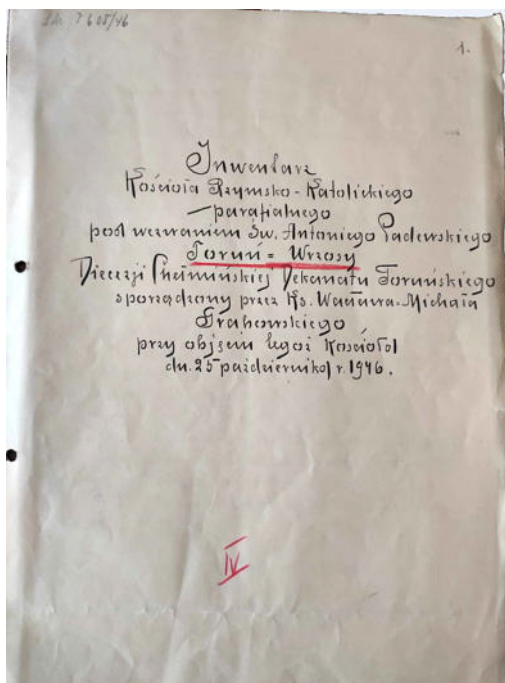 7608/46
1.
Inwentarz
Kościoła Rzymsko-Katolickiego
—parafialnego
pod wezwaniem Św. Antoniego Padewskiego
Toruń = Wrzosy
Diecezji Chełmińskiej Dekanatu Toruńskiego
sporządzony przez Ks. Wacława-Michała
Grabowskiego
przy objęciu tegoż Kościoła
dn. 25 października r. 1946.
IV